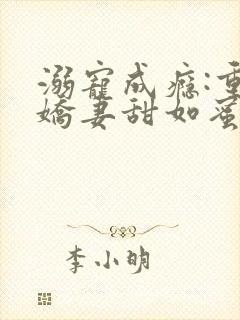 溺寵成癮:重
嬌妻甜如蜜
李小明